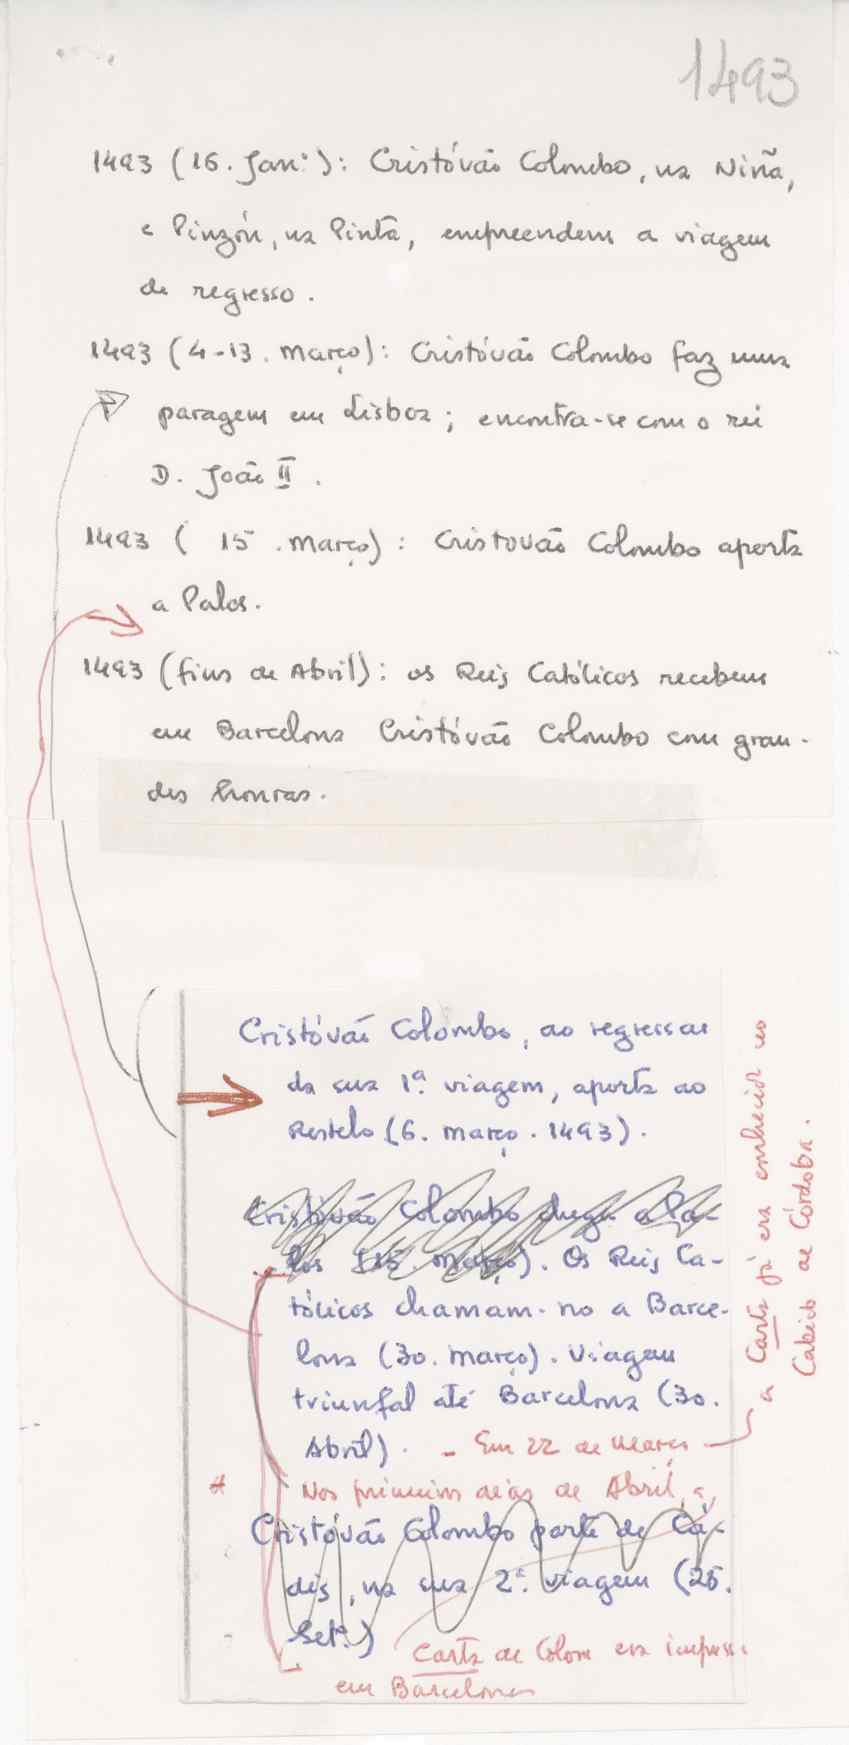 1493
1493 (16. Jan.º): Cristóvão Colombo, na Niña,
e Pinzón, na Pinta, empreendem a viagem
de regresso.
1493 (4-13. março): Cristóvão Colombo faz uma
paragem em Lisboa; encontra-se com o rei
D. João II.
1493 ( 15 . março): Cristovão Colombo aporta
a Palos.
1493 (fins de Abril): os Reis Católicos recebem
em Barcelona Cristóvão Colombo com gran-
des honras.
Cristóvão Colombo, ao regressar
da sua 1ª. viagem, aporta ao
Restelo (6. março. 1493).
Cristóvão Colombo chega a Pa-
los (15. março). Os Reis Ca-
tólicos chamam-no a Barce-
lona (30. março). Viagem
triunfal até Barcelona (30.
Abril). - Em 22 de Março
a Carta já era conhecida no
Cabido de Córdoba.
Nos primeiros dias de Abril, a
Cristóvão Colombo parte de Cá-
dis, na sua 2ª. viagem (25.
Setº.)
Carta de Colom era impressa
em Barcelona